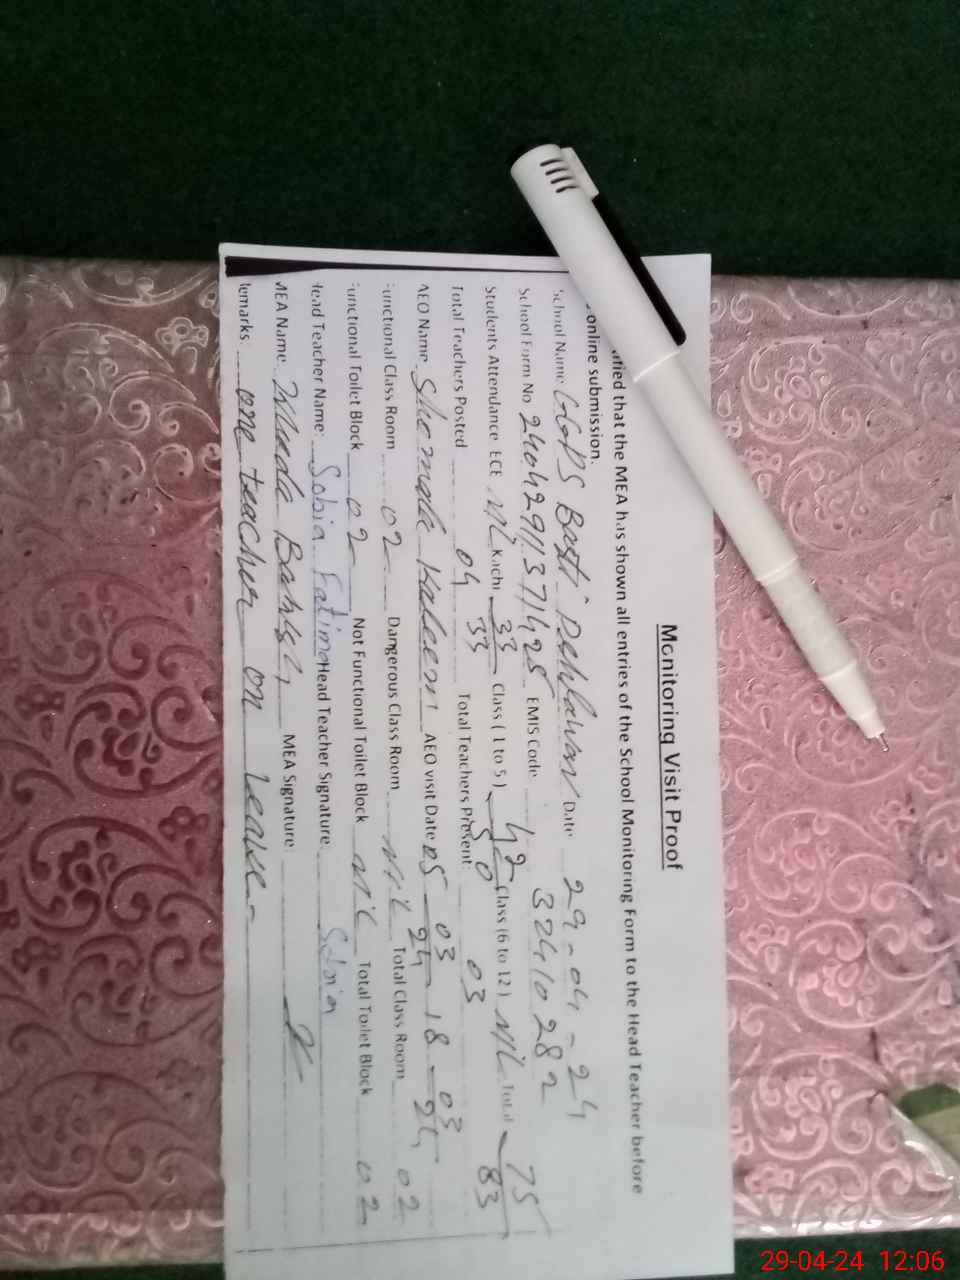 Monitoring Visit Proof
ified that the MEA has shown all entries of the School Monitoring Form to the Head Teacher before
online submission.
School Name GGPS Basti Pehlawan Date 29-04-24
School Form No 24042911371425 EMIS Code 32410282
Students Attendance ECE NIL Kachi 33/33 Class (1 to 5) 42/50 Class (6 to 12) NIL Total 75/83
Total Teachers Posted 04 Total Teachers Present: 03
AEO Name Kaleem AEO visit Date 05-03-24 18-03-24
Functional Class Room 02 Dangerous Class Room NIL Total Class Room 02
Functional Toilet Block 02 Not Functional Toilet Block NIL Total Toilet Block 02
Head Teacher Name: Sobia Fatima Head Teacher Signature: Sobia
MEA Name Bakhsh MEA Signature
Remarks: one teacher on leave.
29-04-24 12:06